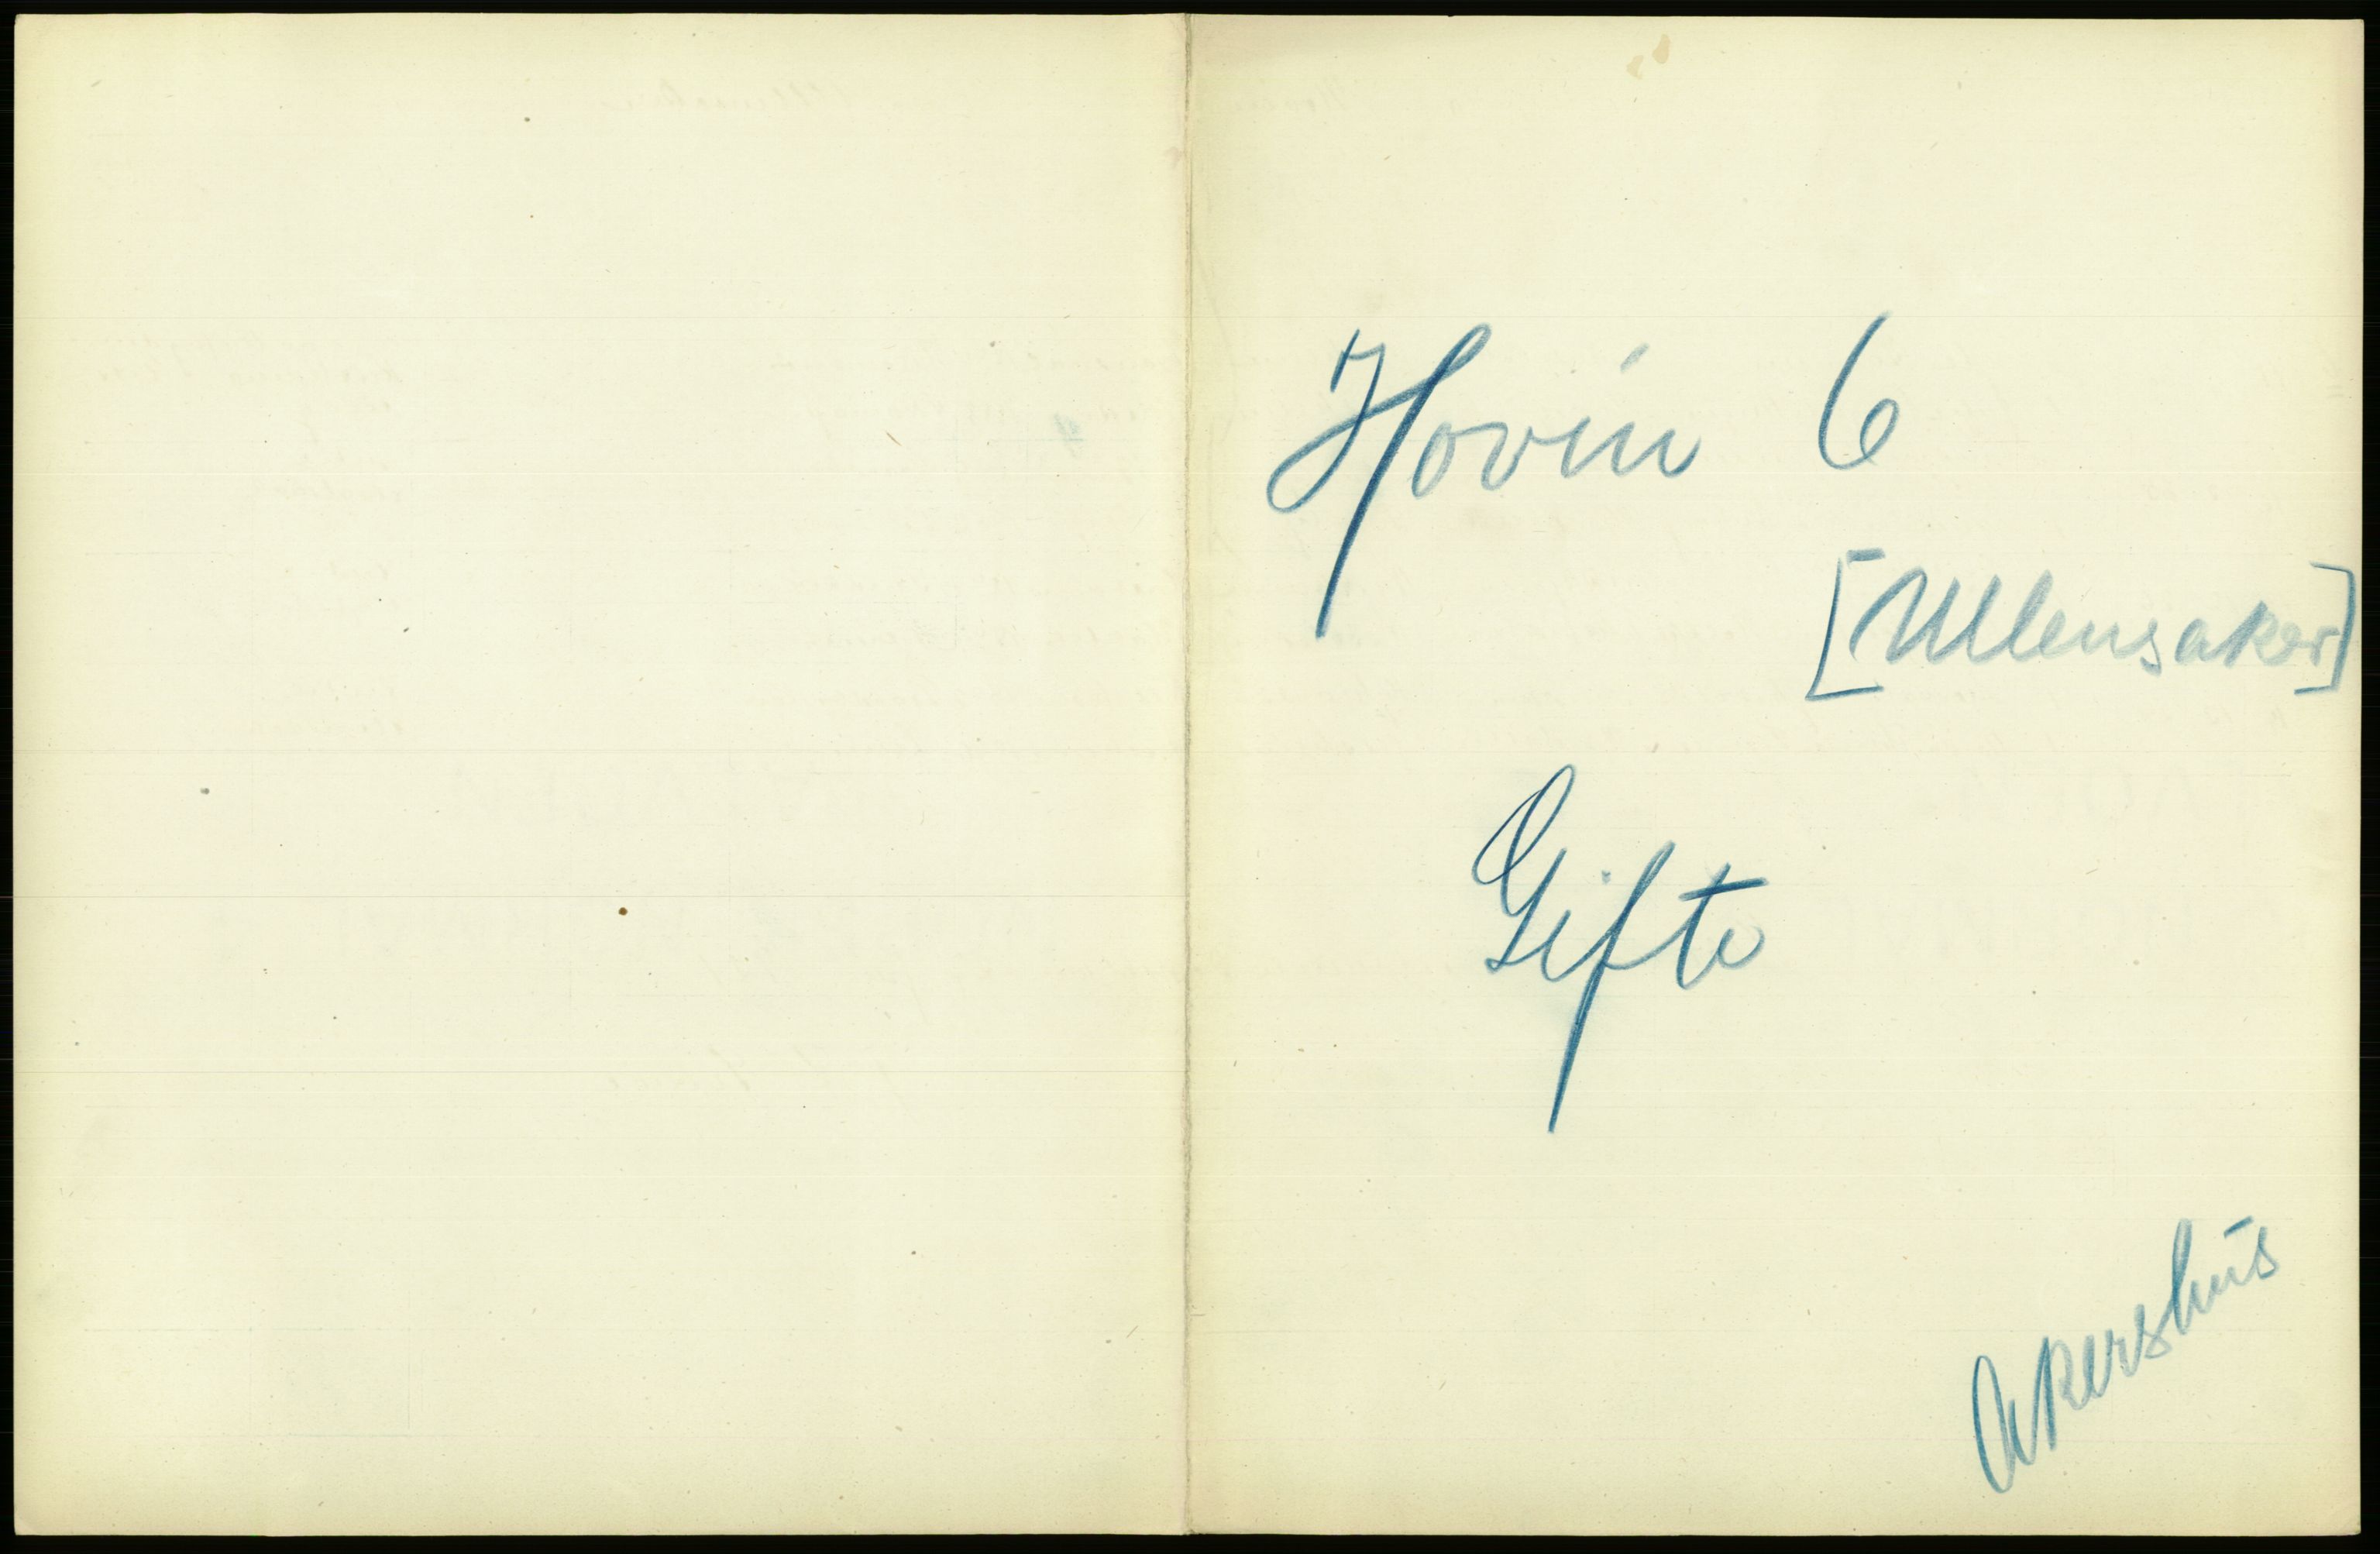 Hovin 6
[Ullensaker]
Gifte
Akershus